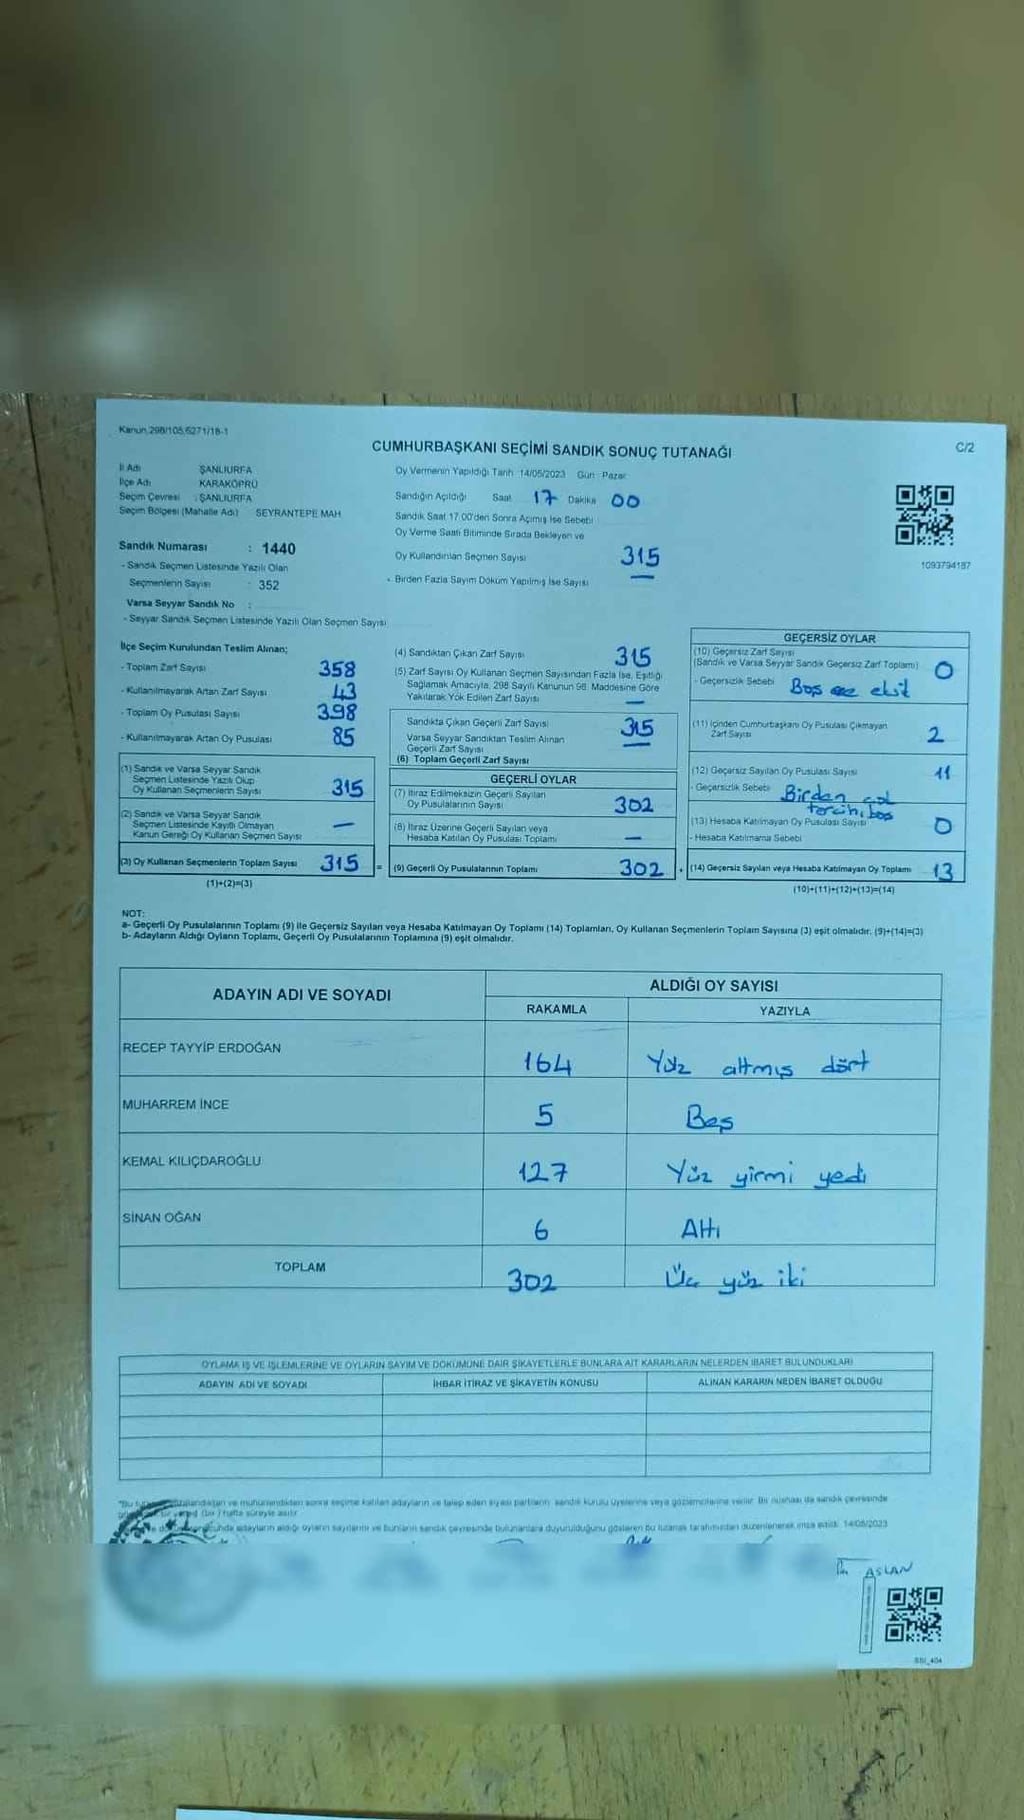 Kanun 298/105,6271/18-1
CUMHURBAŞKANI SEÇİMİ SANDIK SONUÇ TUTANAĞI
C/2
İl Adı ŞANLIURFA
İlçe Adı KARAKÖPRÜ
Seçim Çevresi : ŞANLIURFA
Seçim Bölgesi (Mahalle Adı) SEYRANTEPE MAH
Oy Vermenin Yapıldığı Tarih 14/05/2023 Gün : Pazar
Sandığın Açıldığı Saat 17 Dakika 00
Sandık Saat 17.00'den Sonra Açılmış İse Sebebi
Oy Verme Saati Bitiminde Sırada Bekleyen ve
Oy Kullandırılan Seçmen Sayısı 315
- Birden Fazla Sayım Döküm Yapılmış İse Sayısı —
1093794187
Sandık Numarası : 1440
- Sandık Seçmen Listesinde Yazılı Olan
Seçmenlerin Sayısı : 352
Varsa Seyyar Sandık No :
- Seyyar Sandık Seçmen Listesinde Yazılı Olan Seçmen Sayısı
İlçe Seçim Kurulundan Teslim Alınan;
- Toplam Zarf Sayısı 358
- Kullanılmayarak Artan Zarf Sayısı 43
- Toplam Oy Pusulası Sayısı 398
- Kullanılmayarak Artan Oy Pusulası 85
(1) Sandık ve Varsa Seyyar Sandık
Seçmen Listesinde Yazılı Olup
Oy Kullanan Seçmenlerin Sayısı 315
(2) Sandık ve Varsa Seyyar Sandık
Seçmen Listesinde Kayıtlı Olmayan
Kanun Gereği Oy Kullanan Seçmen Sayısı —
(3) Oy Kullanan Seçmenlerin Toplam Sayısı 315 =
(1)+(2)=(3)
(4) Sandıktan Çıkan Zarf Sayısı 315
(5) Zarf Sayısı Oy Kullanan Seçmen Sayısından Fazla İse, Eşitliği
Sağlamak Amacıyla, 298 Sayılı Kanunun 98. Maddesine Göre
Yakılarak Yok Edilen Zarf Sayısı —
Sandıkta Çıkan Geçerli Zarf Sayısı 315
Varsa Seyyar Sandıktan Teslim Alınan
Geçerli Zarf Sayısı —
(6) Toplam Geçerli Zarf Sayısı
GEÇERLİ OYLAR
(7) İtiraz Edilmeksizin Geçerli Sayılan
Oy Pusulalarının Sayısı 302
(8) İtiraz Üzerine Geçerli Sayılan veya
Hesaba Katılan Oy Pusulası Toplamı —
(9) Geçerli Oy Pusulalarının Toplamı 302 +
GEÇERSİZ OYLAR
(10) Geçersiz Zarf Sayısı
(Sandık ve Varsa Seyyar Sandık Geçersiz Zarf Toplamı) 0
- Geçersizlik Sebebi Boş eksit
(11) İçinden Cumhurbaşkanı Oy Pusulası Çıkmayan
Zarf Sayısı 2
(12) Geçersiz Sayılan Oy Pusulası Sayısı 11
- Geçersizlik Sebebi Birden çok
tercih, boş
(13) Hesaba Katılmayan Oy Pusulası Sayısı 0
- Hesaba Katılmama Sebebi
(14) Geçersiz Sayılan veya Hesaba Katılmayan Oy Toplamı 13
(10)+(11)+(12)+(13)=(14)
NOT:
a- Geçerli Oy Pusulalarının Toplamı (9) ile Geçersiz Sayılan veya Hesaba Katılmayan Oy Toplamı (14) Toplamları, Oy Kullanan Seçmenlerin Toplam Sayısına (3) eşit olmalıdır. (9)+(14)=(3)
b- Adayların Aldığı Oyların Toplamı, Geçerli Oy Pusulalarının Toplamına (9) eşit olmalıdır.
ADAYIN ADI VE SOYADI
ALDIĞI OY SAYISI
RAKAMLA YAZIYLA
RECEP TAYYİP ERDOĞAN 164 Yüz altmış dört
MUHARREM İNCE 5 Beş
KEMAL KILIÇDAROĞLU 127 Yüz yirmi yedi
SİNAN OĞAN 6 Altı
TOPLAM 302 Üç yüz iki
OYLAMA İŞ VE İŞLEMLERİNE VE OYLARIN SAYIM VE DÖKÜMÜNE DAİR ŞİKAYETLERLE BUNLARA AİT KARARLARIN NELERDEN İBARET BULUNDUKLARI
ADAYIN ADI VE SOYADI İHBAR İTİRAZ VE ŞİKAYETİN KONUSU ALINAN KARARIN NEDEN İBARET OLDUĞU
ve mühürlendikten sonra seçime katılan adayların ve talep eden siyasi partilerin sandık kurulu üyelerine veya gözlemcilerine verilir. Bir nüshası da sandık çevresinde
(bir) hafta süreyle asılır.
adayların aldığı oyların sayılarını ve bunların sandık çevresinde bulunanlara duyurulduğunu gösteren bu tutanak tarafımızdan düzenlenerek imza edildi. 14/05/2023
ASLAN
SSI_404